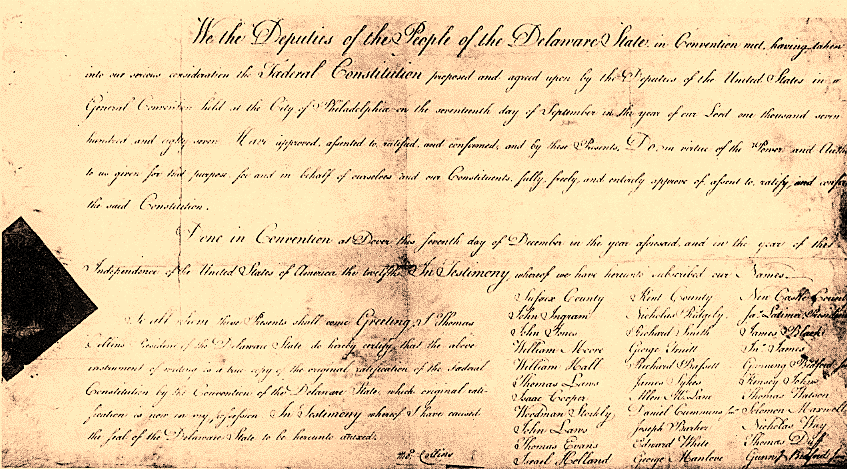 We the Deputies of the People of the Delaware State, in Convention met, having taken
into our serious consideration the Fæderal Constitution proposed and agreed upon by the Deputies of the United States in a
General Convention held at the City of Philadelphia on the seventeenth day of September in the year of our Lord one thousand seven
hundred and eighty seven, Have approved, assented to, ratified, and confirmed, and by these Presents, Do, in virtue of the Power and
to us given for that purpose, for and in behalf of ourselves and our Constituents, fully, freely, and entirely approve of, assent to, ratify, and
the said Constitution.
Done in Convention at Dover this seventh day of December in the year aforesaid, and in the year of the
Independence of the United States of America the twelfth. In Testimony whereof we have hereunto subscribed our Names.
To all whom these Presents shall come Greeting, I Thomas
Collins President of the Delaware State do hereby certify, that the above
instrument of writing is a true copy of the original ratification of the Fœderal
Constitution by the Convention of the Delaware State, which original rati-
fication is now in my possession. In Testimony whereof I have caused
the seal of the Delaware State to be hereunto annexed.
Thos. Collins
Sussex County
John Ingram
John Jones
William Moore
William Hall
Thomas Laws
Isaac Cooper
Woodman Stockly
John Laws
Thomas Evans
Israel Holland
Kent County
Nicholas Ridgely
Richard Smith
George Truitt
Richard Bassett
James Sykes
Allen McLane
Daniel Cummins senr
Joseph Barker
Edward White
George Manlove
New Castle County
Jas. Latimer, President
James Black
Jno. James
Gunning Bedford senr
Kensey Johns
Thomas Watson
Solomon Maxwell
Nicholas Way
Thomas Duff
Gunng. Bedford junr